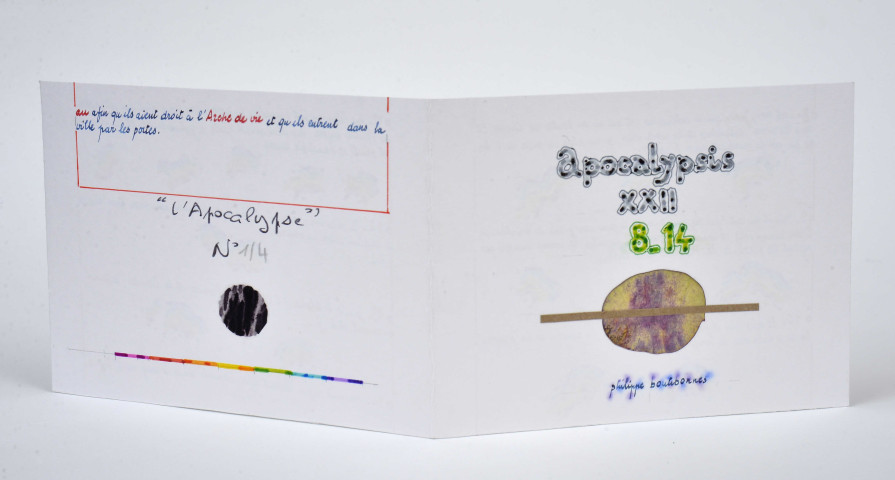 ou afin qu'ils aient droit à l'Arche de vie et qu'ils entrent dans la
ville par les portes.
"L'Apocalypse"
N° 1/4
apocalypsis
XXII
8_14
philippe boutibonnes